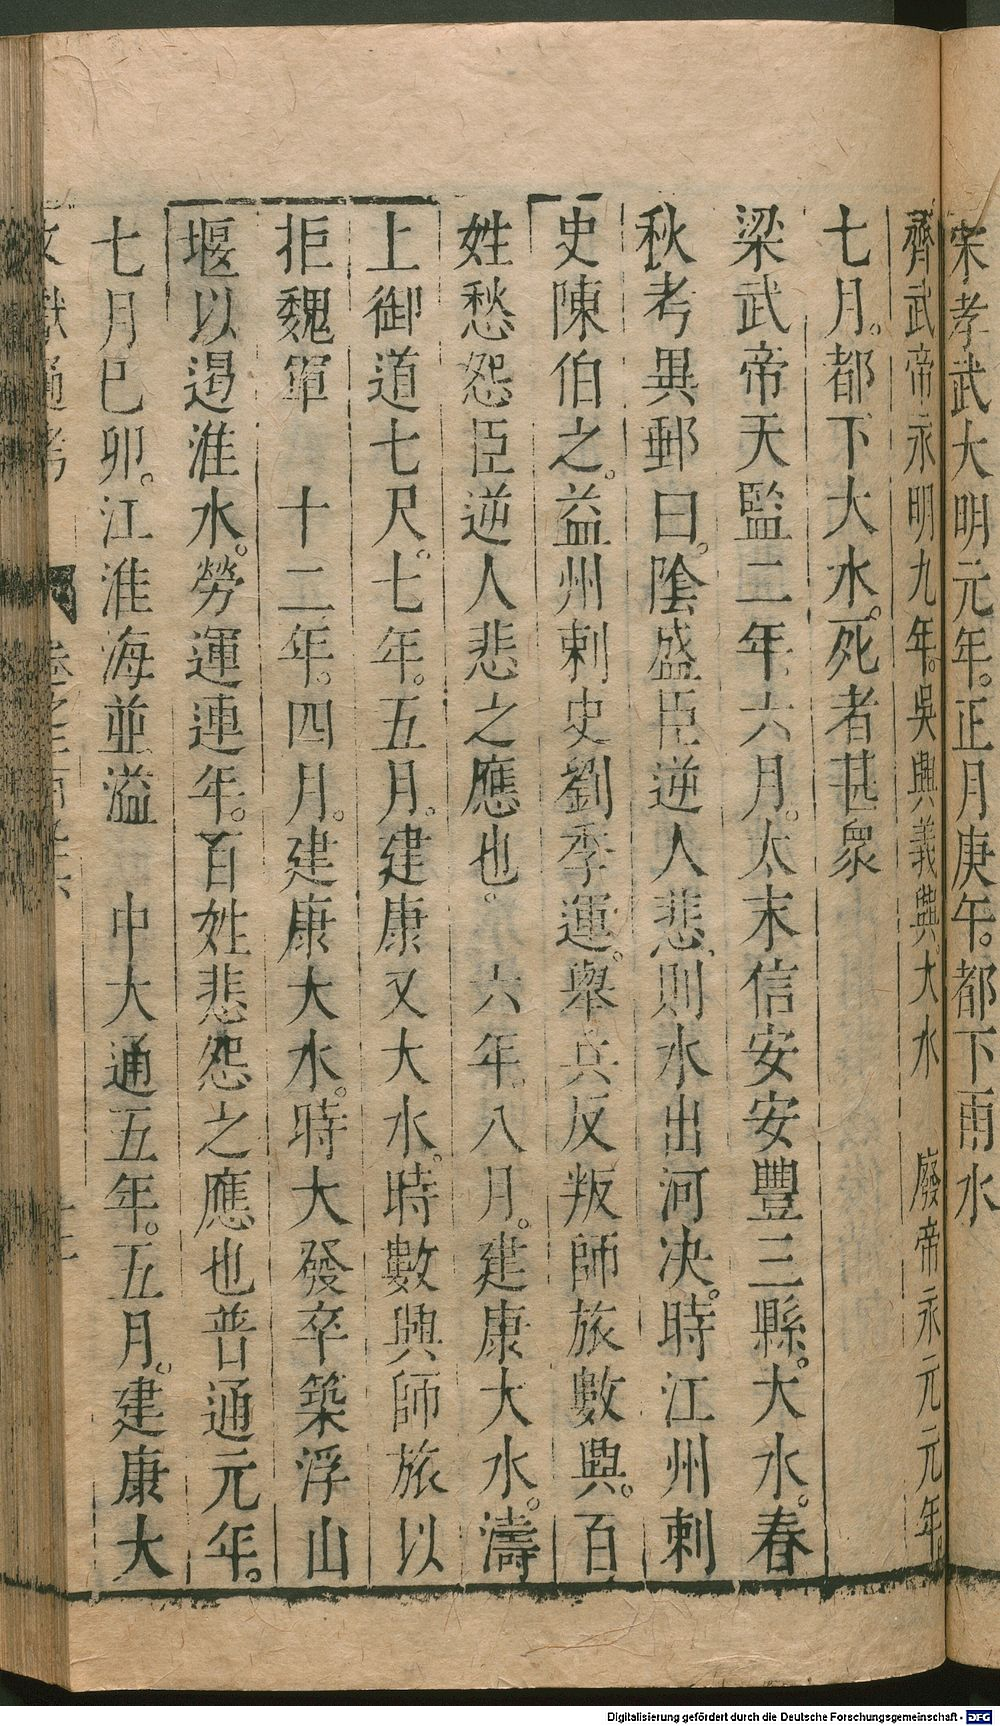 宋孝武大明元年。正月庚午。都下雨水
齊武帝永明九年。吳興義興。大水　廢帝永元元年。
七月。都下大水。死者甚衆
梁武帝天監二年。六月。太末信安安豐三縣。大水。春
秋考異郵曰。陰盛臣逆人悲。則水出河决。時江州刺
史陳伯之。益州刺史劉季連。舉兵反叛師旅數興。百
姓愁怨臣逆人悲之應也。　六年。八月。建康大水。濤
上御道七尺。七年。五月。建康又大水。時數興師旅以
拒魏軍　十二年。四月。建康大水。時大發卒築浮山
堰以遏淮水。勞運連年。百姓悲怨之應也普通元年。
七月巳卯。江淮海並溢　中大通五年。五月。建康大
Digitalisierung gefördert durch die Deutsche Forschungsgemeinschaft - DFG